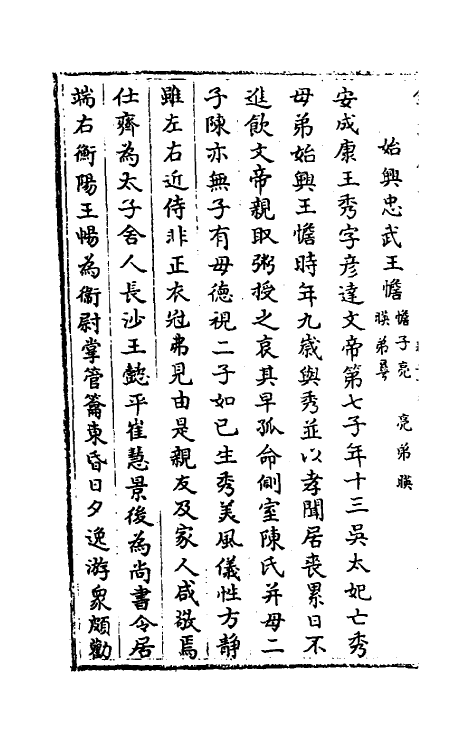 始興忠武王憺 憺子亮 亮弟暎
暎弟曅
安成康王秀字彦達文帝第七子年十三吳太妃亡秀
母弟始興王憺時年九歳與秀並以孝聞居丧累日不
進飲文帝親取粥授之哀其早孤命側室陳氏并母二
子陳亦無子有母徳視二子如已生秀美風儀性方静
雖左右近侍非正衣冠弗見由是親友及家人咸敬焉
仕齊為太子舍人長沙王懿平崔慧景後為尚書令居
端右衡陽王暢為衞尉掌管籥東昏日夕逸游衆頗勸